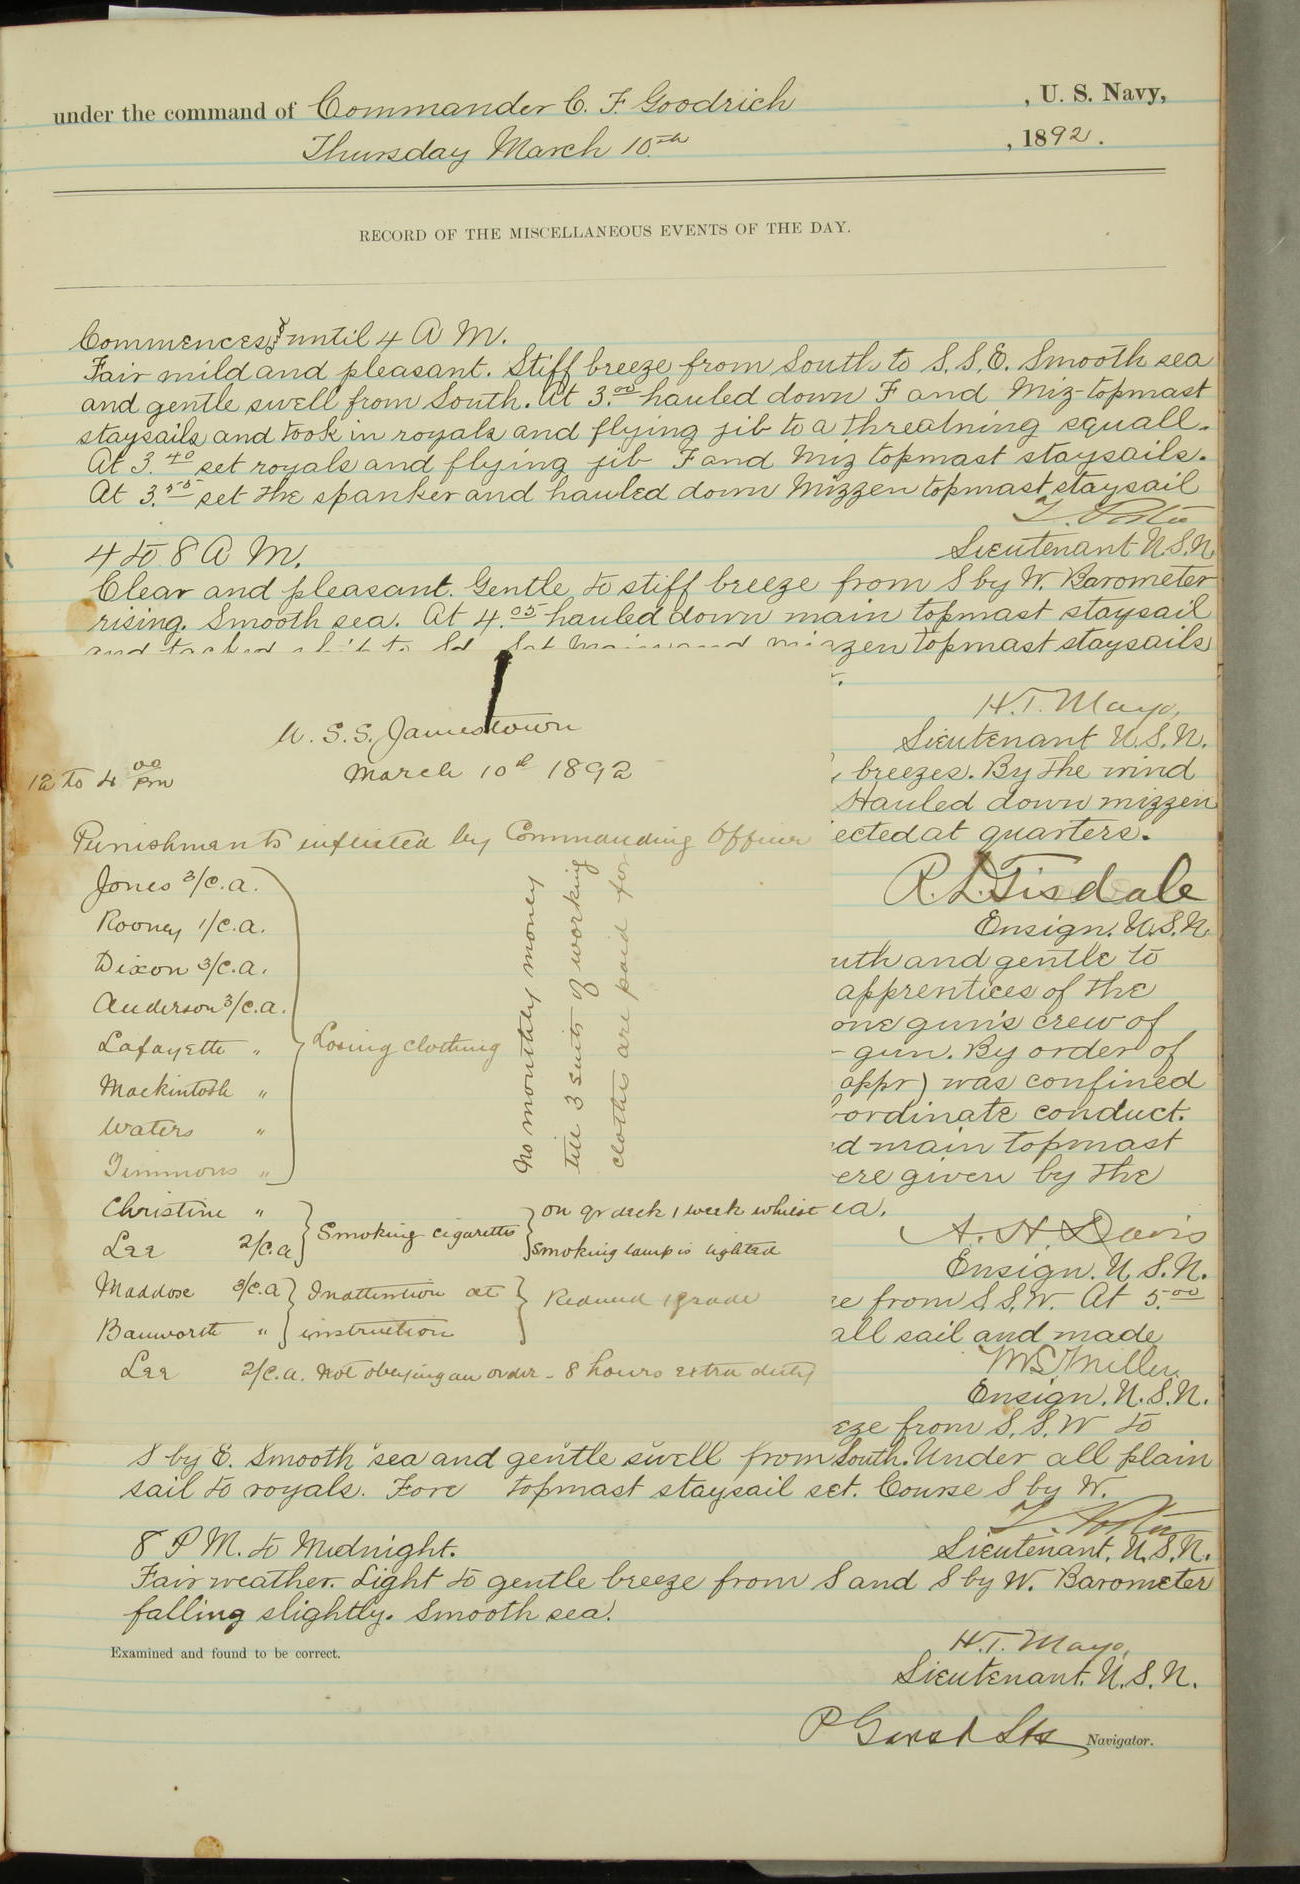 under the command of Commander C. F. Goodrich , U. S. Navy,
Thursday March 10th , 1892.
RECORD OF THE MISCELLANEOUS EVENTS OF THE DAY.
Commences, & until 4 A M.
Fair mild and pleasant. Stiff breeze from South to S. S. E. Smooth sea
and gentle swell from South. At 3.00 hauled down F and Miz-topmast
staysails and took in royals and flying jib to a threatning squall.
At 3.40 set royals and flying jib F and Miz topmast staysails.
At 3.55 set the spanker and hauled down Mizzen topmast staysail
Lieutenant U.S.N.
4 to 8 A M.
Clear and pleasant. Gentle to stiff breeze from S by W. Barometer
rising. Smooth sea. At 4.05 hauled down main topmast staysail
and tacked ship to Set Main and mizzen topmast staysails
H.T. Mayo,
Lieutenant U.S.N.
breezes. By the wind
Hauled down mizzen
ected at quarters.
R. L. Tisdale
Ensign. U.S.N.
uth and gentle to
apprentices of the
one gun's crew of
gun. By order of
appr) was confined
ordinate conduct.
d main topmast
ere given by the
ea.
A. H. Davis
Ensign. U.S.N.
e from S.S.W. At 5.00
all sail and made
Miller
Ensign. U.S.N.
eze from S.S.W to
U. S. S. Jamestown
March 10th 1892
12 to 4 00 Pm
Punishments inflicted by Commanding Officer
Jones 3/c.a.
Rooney 1/c.a.
Dixon 3/c.a.
Anderson 3/c.a.
Lafayette "
Mackintosh "
Waters "
Timmons "
Losing clothing
No monthly money
till 3 suits of working
clothes are paid for
Christine "
Lee 2/c.a
Smoking cigarettes
on qr deck 1 week whilst
smoking lamp is lighted
Maddose 3/c.a
Bauworth "
Inattention at
instruction
Reduced 1 grade
Lee 2/c.a. Not obeying an order - 8 hours extra duty
S by E. Smooth sea and gentle swell from South. Under all plain
sail to royals. Fore topmast staysail set. Course S by W.
Lieutenant, U.S.N.
8 P M. to Midnight.
Fair weather. Light to gentle breeze from S and S by W. Barometer
falling slightly. Smooth sea.
Examined and found to be correct.
H.T. Mayo,
Lieutenant. U.S.N.
Navigator.